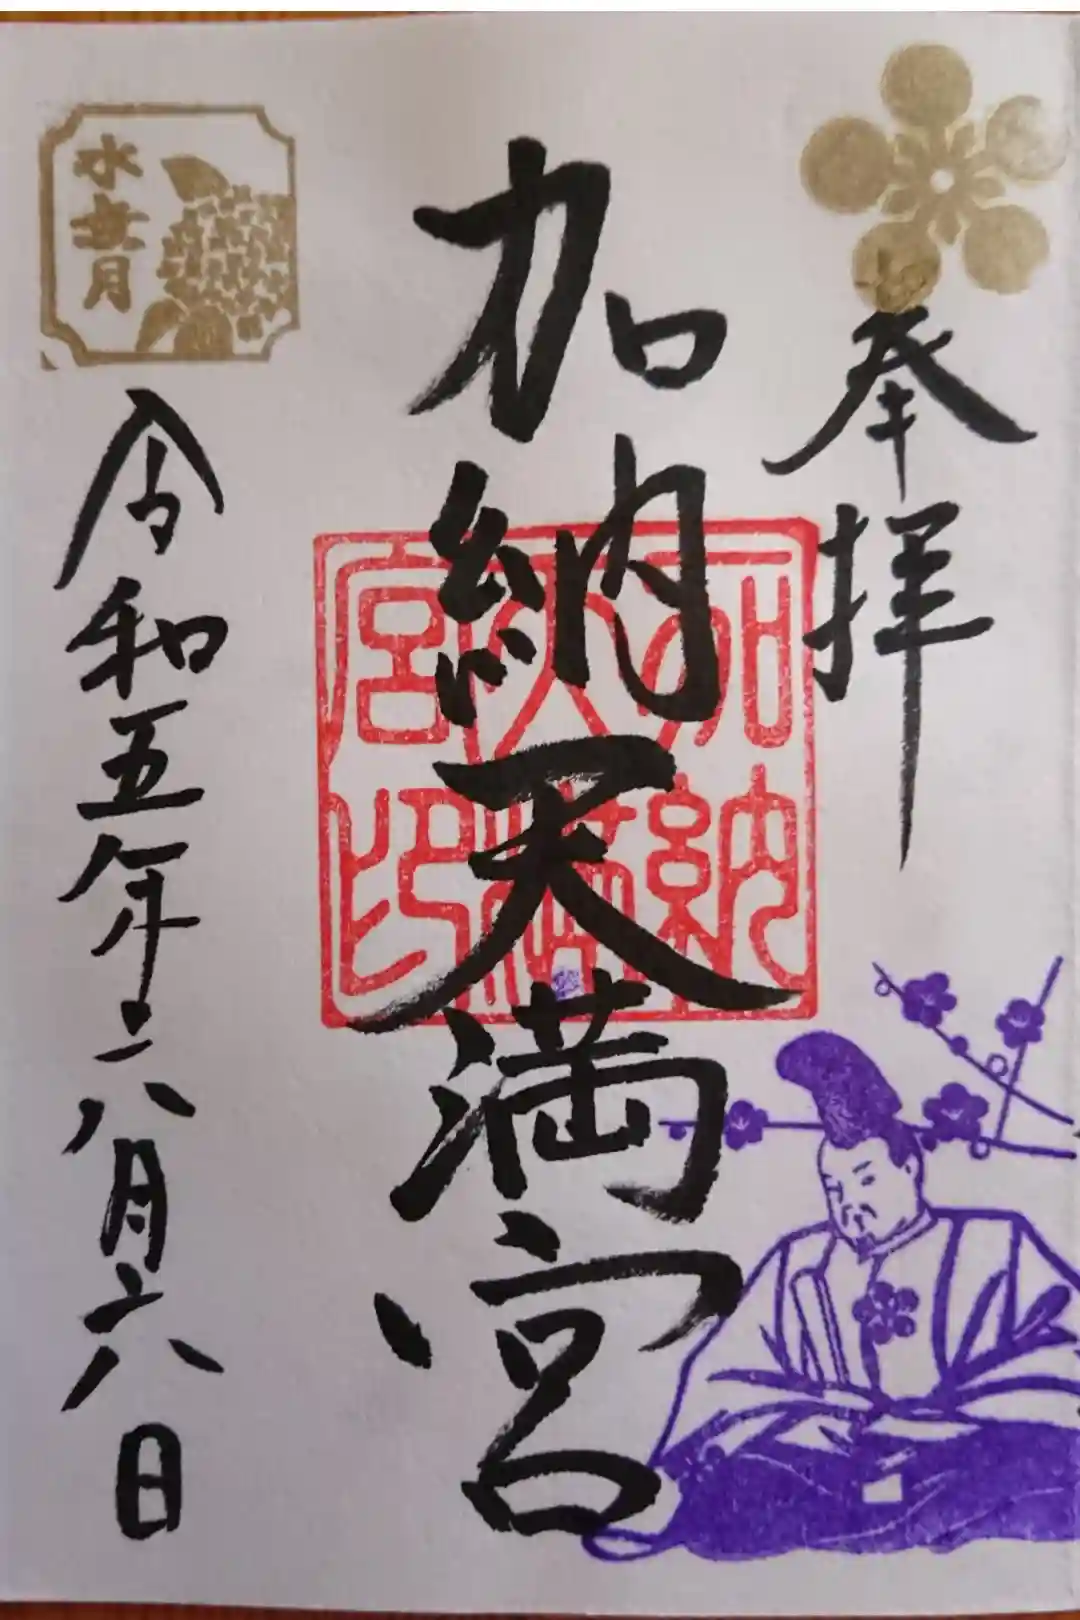 奉拝
加納天満宮
加納天満宮印
水無月
令和五年六月六日